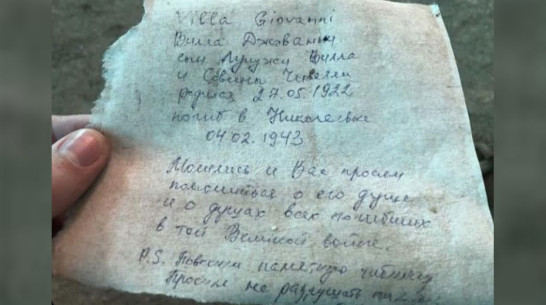 Villa Giovanni
Вилла Джованни
сын Луиджи Вилла
и
родился 27.05.1922
погиб в Николаевке
04.02.1943
Молились и Вас просим
помолиться о его душе
и о душах всех погибших
в той Великой войне.
P.S. Повесили памятную табличку
Просим не разрушать